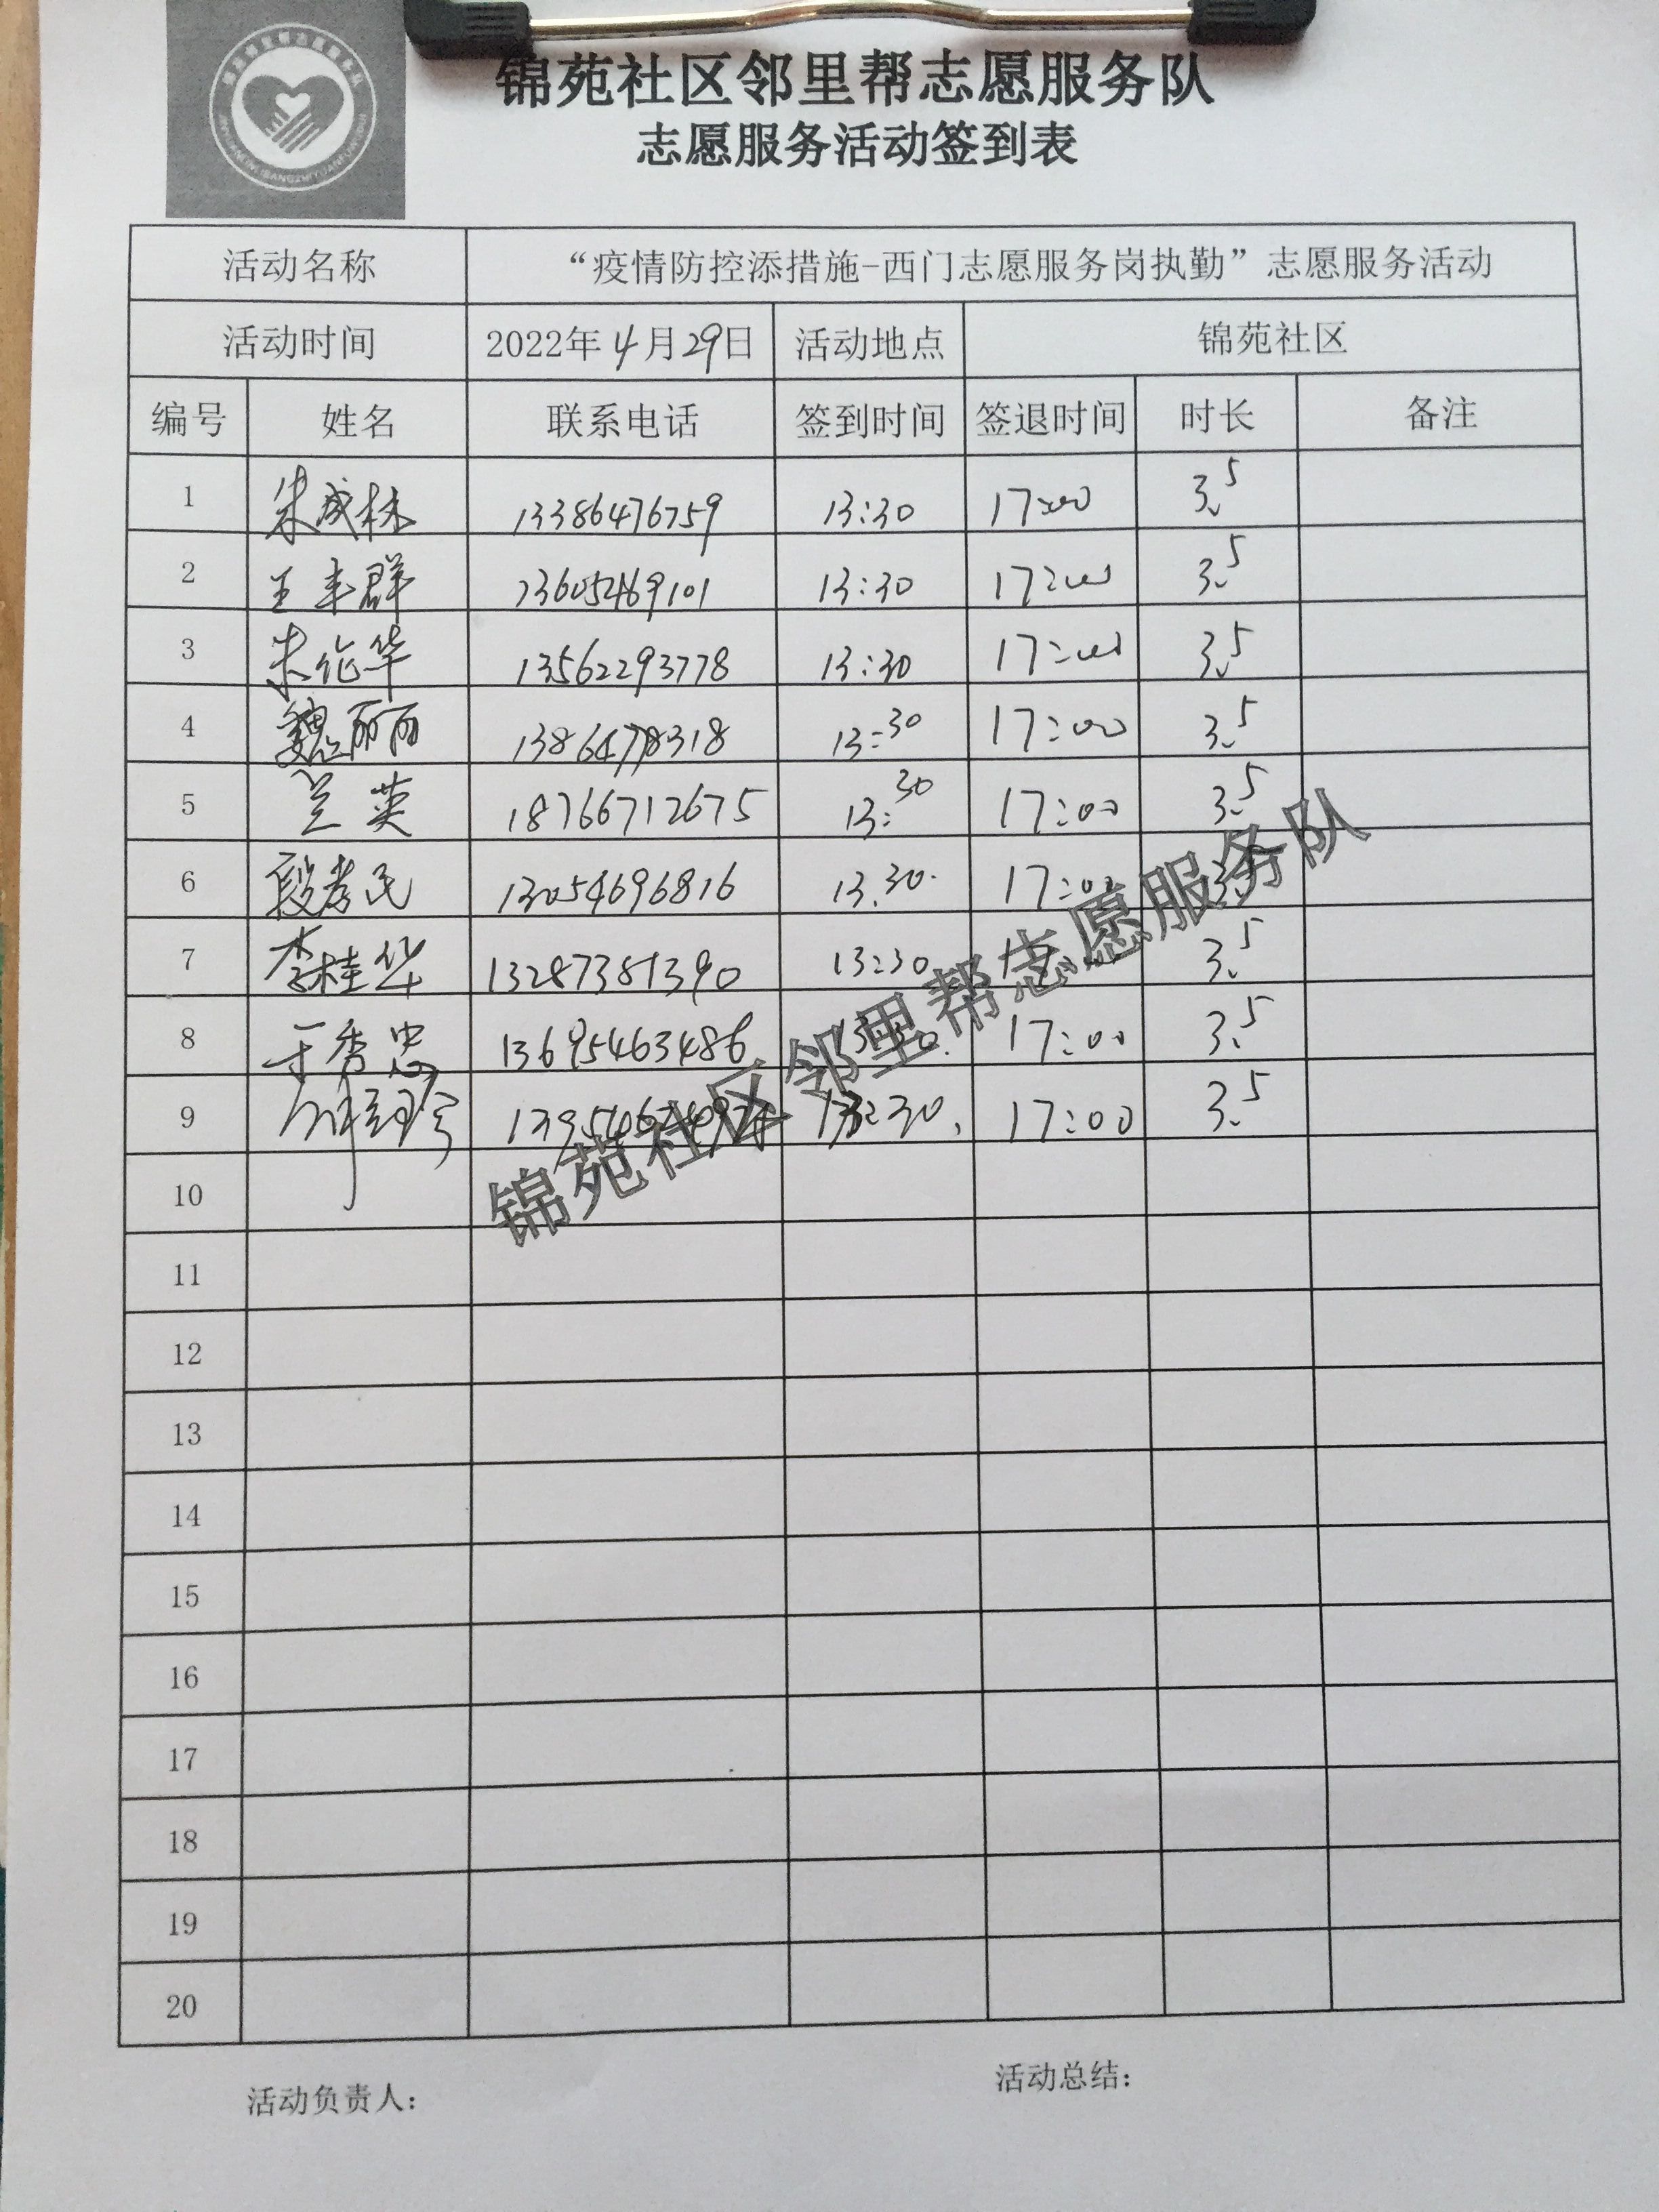 锦苑社区邻里帮志愿服务队
志愿服务活动签到表
活动名称 “疫情防控添措施-西门志愿服务岗执勤”志愿服务活动
活动时间 2022年4月29日 活动地点 锦苑社区
编号 姓名 联系电话 签到时间 签退时间 时长 备注
1 朱成林 13386476759 13:30 17:00 3.5
2 王丰群 13605469101 13:30 17:00 3.5
3 朱作华 13562293778 13:30 17:00 3.5
4 魏丽丽 13:30 17:00 3.5
5 兰英 18766712675 13:30 17:00 3.5
6 段孝民 13054696816 13.30. 17:00
7 李桂华 13287381390 13:30 3.5
8 于秀忠 13695463486 13:30. 17:00 3.5
9 13:30. 17:00 3.5
10
11
12
13
14
15
16
17
18
19
20
锦苑社区邻里帮志愿服务队
活动负责人： 活动总结：